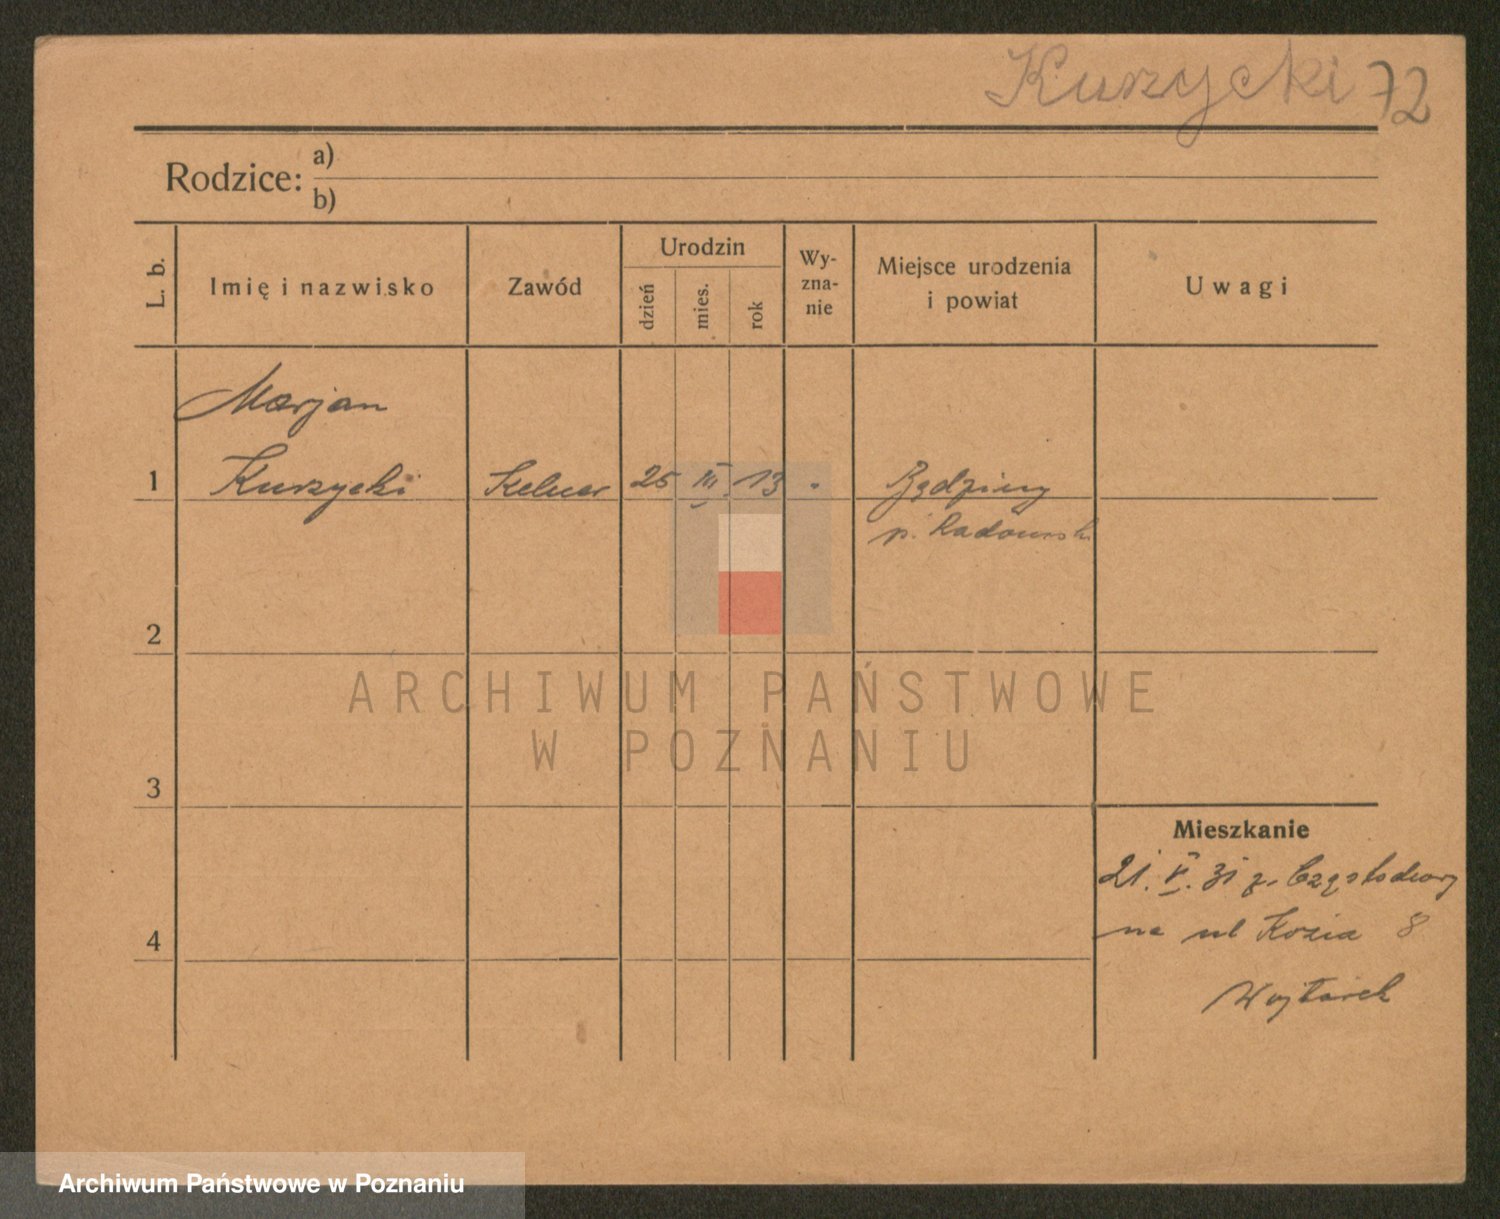 Kurzycki 72
Rodzice: a)
b)
L. b.
Imię i nazwisko
Zawód
Urodzin
dzień
mies.
rok
Wy-
zna-
nie
Miejsce urodzenia
i powiat
Uwagi
Marjan
1 Kurzycki Kelner 25 III 13
p. Radomsk
2
ARCHIWUM PAŃSTWOWE
W POZNANIU
3
Mieszkanie
21. V. 31 z. Częstochowy
na ul Kozia 8
4
Wojtasik
Archiwum Państwowe w Poznaniu